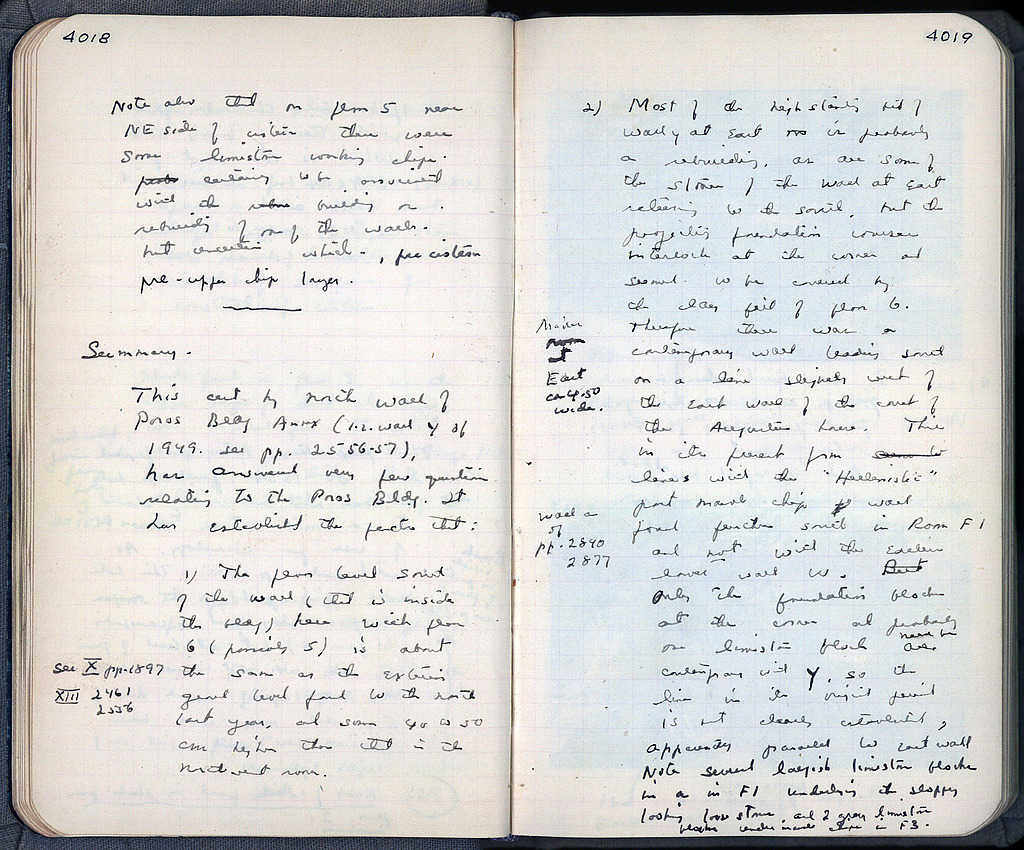 4018
Note also that on floor 5 near
NE side of cistern there were
Some limestone working chips.
certainly to be associated
with the building or
rebuilding of one of the walls.
but uncertain which -, pre cistern
pre-upper chip layer.
Summary.
This cut by north wall of
Poros Bldg Annex (i.e. wall y of
1949. see pp. 2556-57),
has answered very few questions
relating to the Poros Bldg. It
has established the facts that:
1) The floor level south
of the wall (that is inside
the bldg) here with floor
6 (possibly 5) is about
see X pp. 1897
the same as the exterior
XIII 2461
2556
ground level found to the north
last year, and some 40 to 50
cm higher than that in the
northwest room.
4019
2) Most of the high standing bit of
wall y at East is probably
a rebuilding, as are some of
the stones of the wall at East
returning to the south, but the
projecting foundation courses
interlock at the corner and
seemed to be covered by
the clay fill of floor 6.
Therefore there was a
contemporary wall leading south
East
ca 4.50
wide.
on a line slightly west of
the East wall of the court of
the Augustan house. This
in its present form
levels with the "Hellenistic"
post marble chip wall
wall a
of
pp. 2890
2877
found further south in Room F1
and not with the Eastern
lower wall w.
only the foundation blocks
at the corner and probably
one limestone block near
contemporary with y, so the
line in its original period
is not clearly established,
apparently parallel to East wall
Note several largish limestone blocks
in a in F1 underlying the sloppy
looking loose stones and 2 grey limestone
blocks under marble chips in F3.